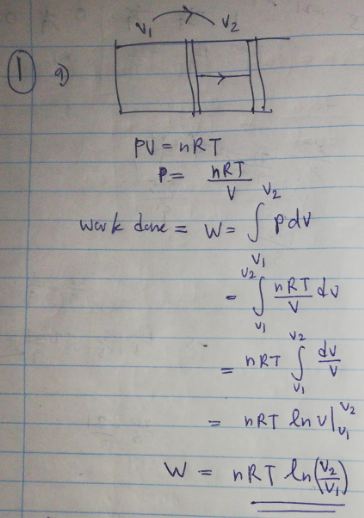 V₁ V₂
① a)
PV = nRT
P = nRT/V
Work done = W = ∫_{V₁}^{V₂} P dV
= ∫_{V₁}^{V₂} nRT/V dV
= nRT ∫_{V₁}^{V₂} dV/V
= nRT ln V |_{V₁}^{V₂}
W = nRT ln(V₂/V₁)